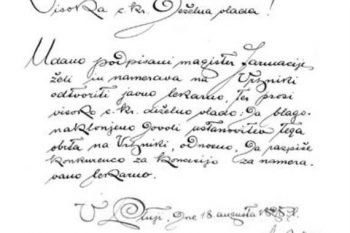 Visoka c. kr. deželna vlada!
Udano podpisani magister farmacije
želi in namerava na Vrhniki
odtvoriti javno lekarno. Ter prosi
visoko c. kr. deželno vlado: Da blago-
naklonjeno dovoli ustanovitev tega
obrta na Vrhniki, odnosno: Da razpiše
konkurenco za koncesijo za namera-
vano lekarno.
V Ptuji, dne 18 augusta